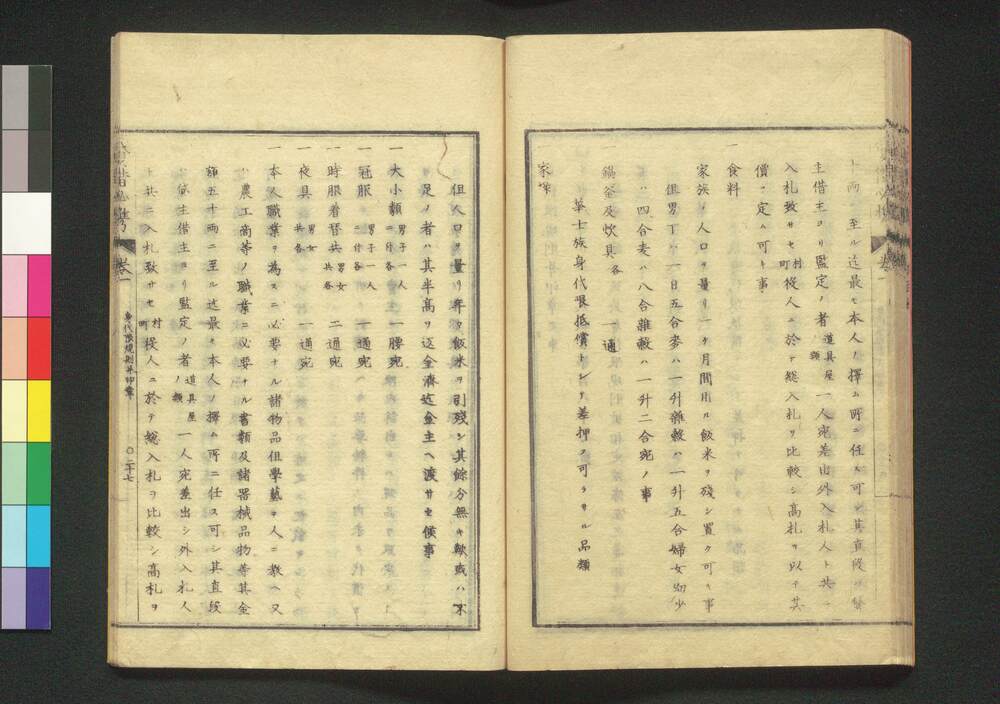 ト両ニ至ル迄最モ本人ノ擇ム所ニ任ス可シ其直段ハ
主借主ヨリ監定ノ者道具屋ノ類一人宛差出外入札人ト共ニ
入札致サセ村町役人ニ於テ総入札ヲ比較シ高札ヲ以テ其
價ヲ定ム可キ事
一食料
家族ノ人口ヲ量リ一ケ月間用ル飯米ヲ残シ置ク可キ事
但男子ハ一日五合麥ハ一升雜穀ハ一升五合婦女幼少
ハ四合麦ハ八合雜穀ハ一升二合宛ノ事
一鍋釜及炊具各一通
華士族身代限抵償トシテ差押フ可ラサル品類
家禄
但人口ヲ量リ年々飯米ヲ引残シ其餘分無キ歟或ハ不
足ノ者ハ其半高ヲ返金済迄金主ヘ渡サセ候事
一大小類男子一人ニ付各一腰宛
一冠服男子一人ニ付各一通宛
一時服着替共男女共各二通宛
一夜具男女共各一通宛
一本人職業ヲ為スニ必要ナル諸物品但學藝ヲ人ニ教ヘ又
ハ農工商等ノ職業ニ必要ナル書類及諸器械品物等其金
額五十両ニ至ル迄最モ本人ノ擇ム所ニ任ス可シ其直段
ハ貸主借主ヨリ監定ノ者道具屋ノ類一人宛差出シ外入札人
ト共ニ入札致サセ村町役人ニ於テ総入札ヲ比較シ高札ヲ
巻一
身代限規則并印章
〇二十七